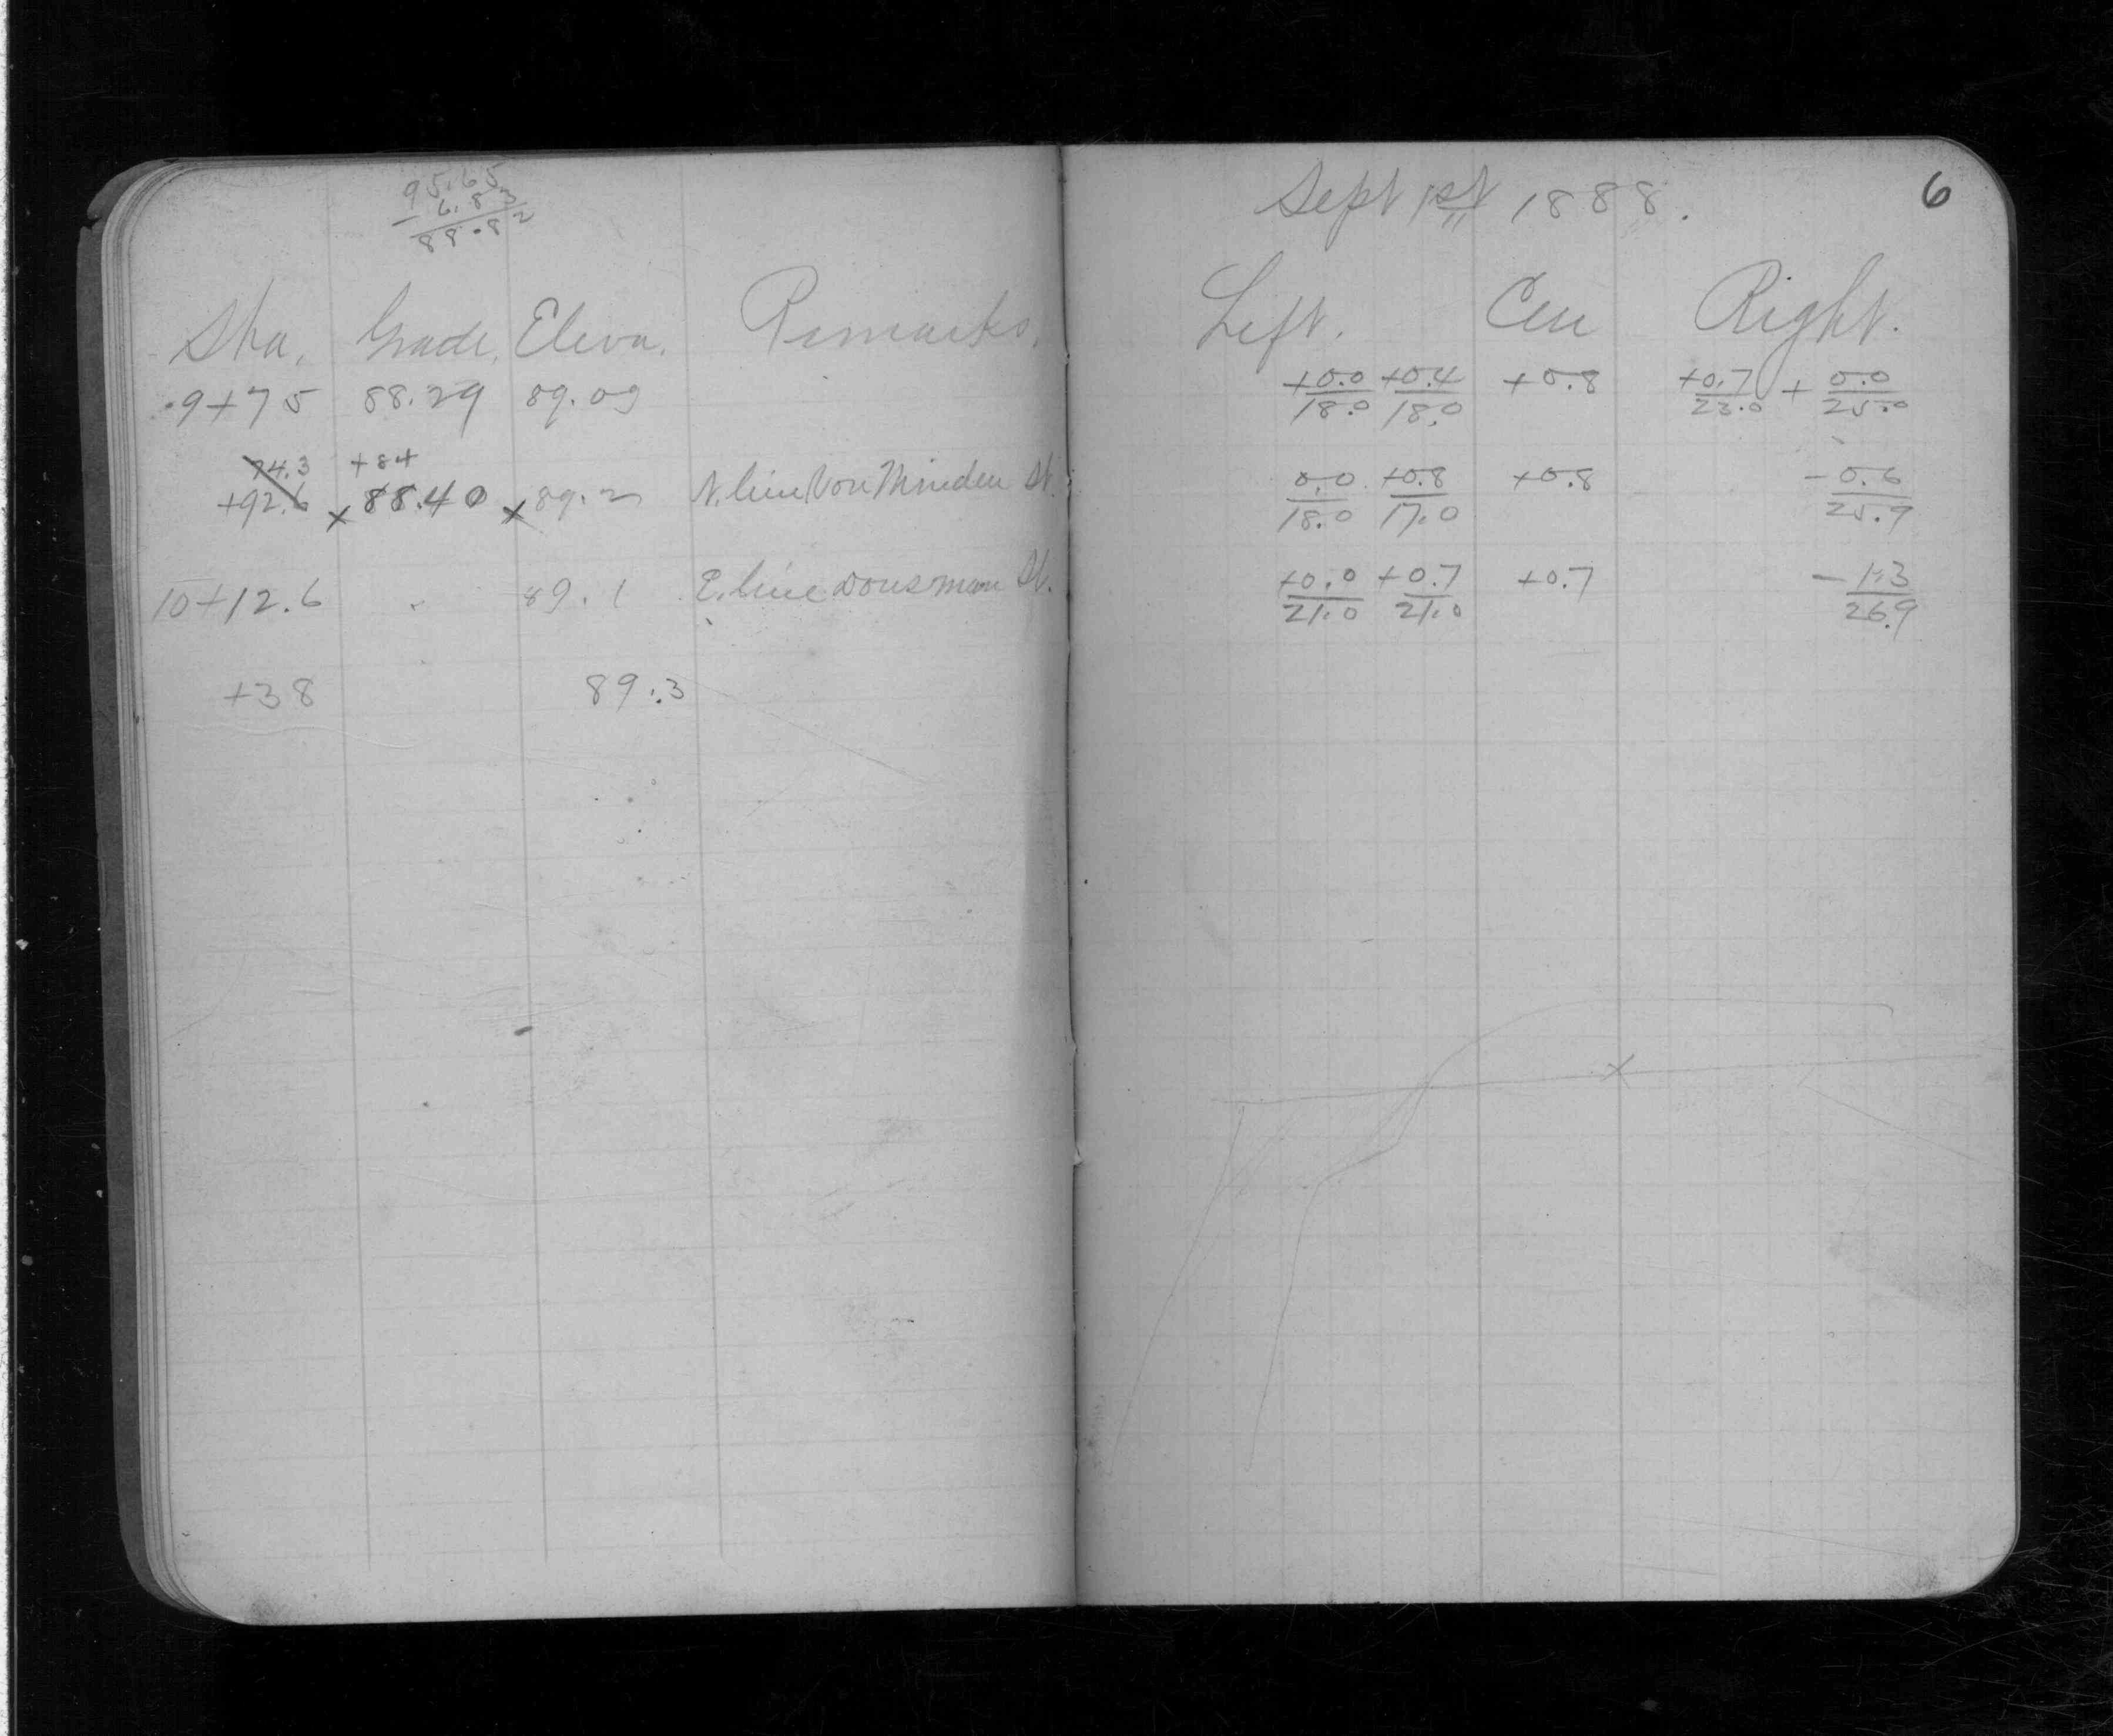 95.65
- 6.83
88.82
Sta. Grade. Eleva. Remarks.
9+75 88.29 89.09
74.3 +84
+92.6 x 88.40 x 89.2 N. line Von Minden St.
10+12.6 89.1 E. line Dousman St.
+38 89.3
Sept 1st 1888. 6
Left. Cen Right.
+0.0 +0.4 +0.8 +0.7 + 0.0
18.0 18.0 23.0 25.0
0.0 +0.8 +0.8 -0.6
18.0 17.0 25.9
+0.0 +0.7 +0.7 -1.3
21.0 21.0 26.9
x